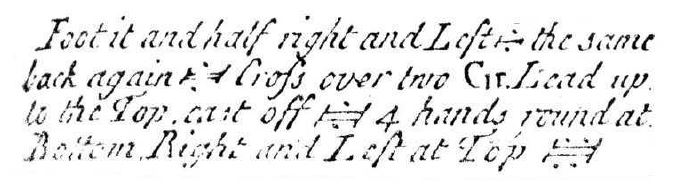 Foot it and half right and Left the same
back again Croſs over two Cu. Lead up
to the Top, cast off 4 hands round at
Bottom, Right and Left at Top